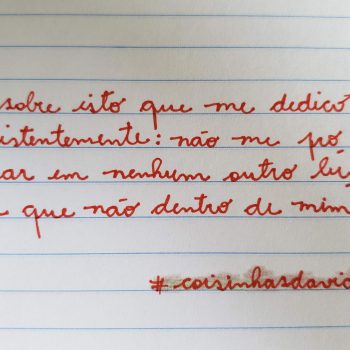 sobre isto que me dedico
istentemente: não me pô
ar em nenhum outro lu
que não dentro de mim
#coisinhasdavid